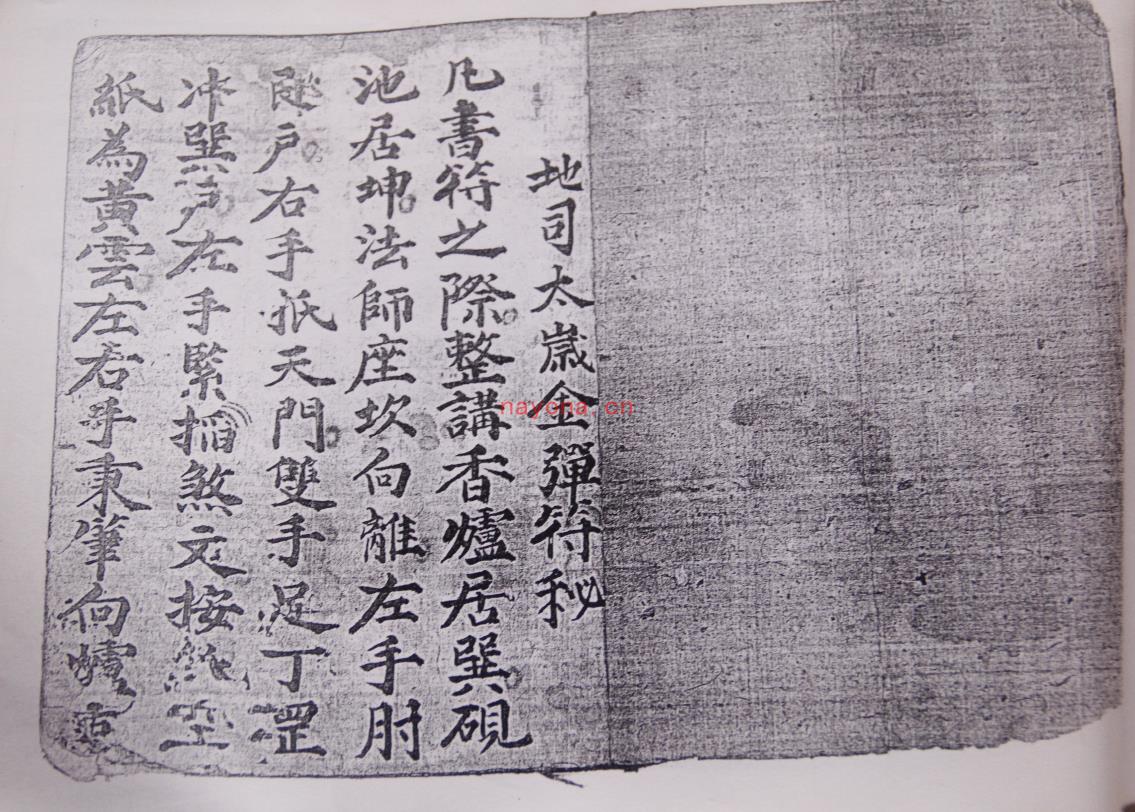 地司太歲金彈符秘
凡書符之際整講香爐居巽硯
池居坤法師座坎向離左手肘
戶右手抵天門雙手足丁罡
冲巽戶左手緊搯煞文按紙
紙為黃雲左右手秉筆向爐
nayona.cn